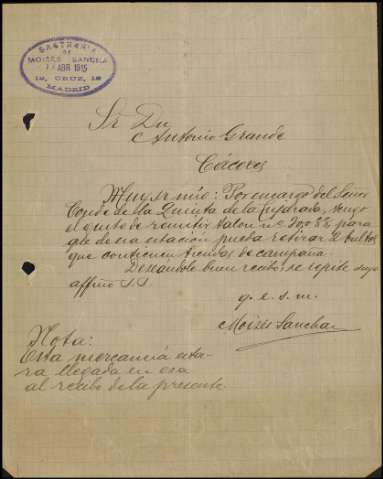 SASTRERIA
DE
MOISES SANCHA
17 ABR 1915
12, CRUZ, 12
MADRID
Sr Dn
Antonio Grande
Cáceres
Muy Sr mío: Por encargo del Señor
Conde de la Quinta de la Enjarada, tengo
el gusto de remitir talon nº para
que de esa estación pueda retirar 2 bultos
que contienen tiendas de campaña
Deseandole buen recibo se repite suyo
affmo S.S.
q. e. s. m.
Moisés Sancha
Nota:
Esta mercancia esta-
ra llegada en esa
al recibo de la presente.